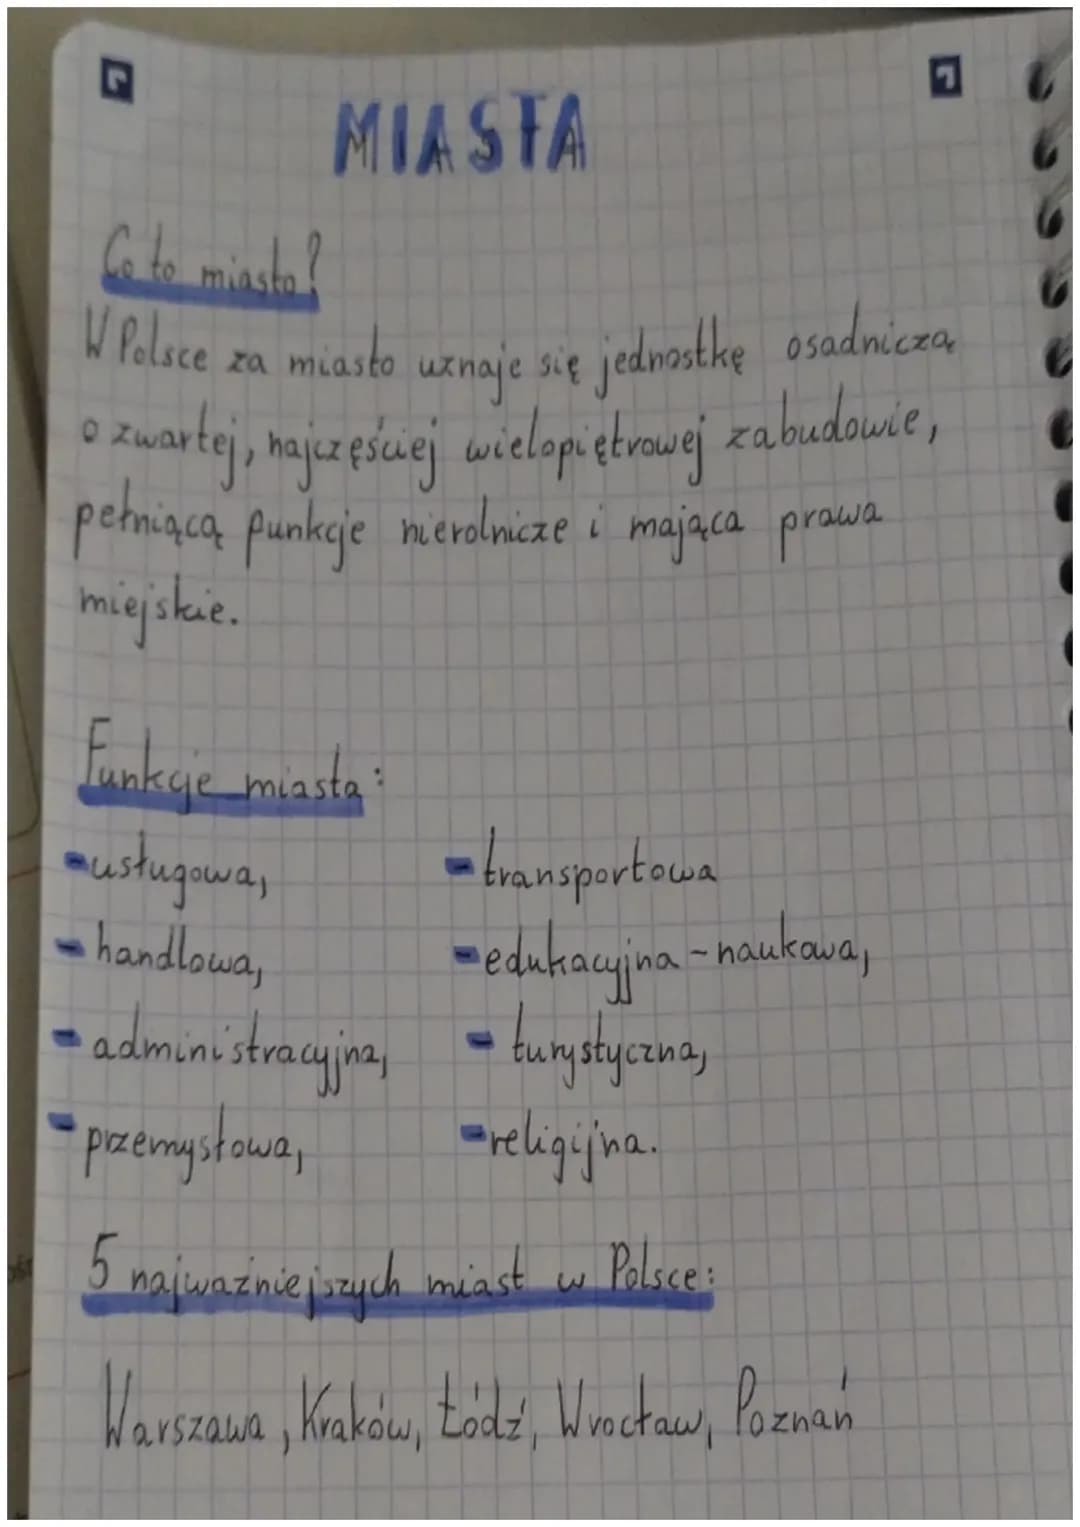 MIASTA
Co to miasto?
W Polsce za miasto uznaje się jednostkę osadniczą
o zwartej, najczęściej wielopiętrowej zabudowie,
pełniącą funkcje nierolnicze i mającą prawa
miejskie.
Funkcje miasta:
-usługowa,
-transportowa
-handlowa,
-edukacyjna-naukowa,
-administracyjna,
-turystyczna,
-przemysłowa,
-religijna.
5 najważniejszych miast w Polsce:
Warszawa, Kraków, Łódź, Wrocław, Poznań